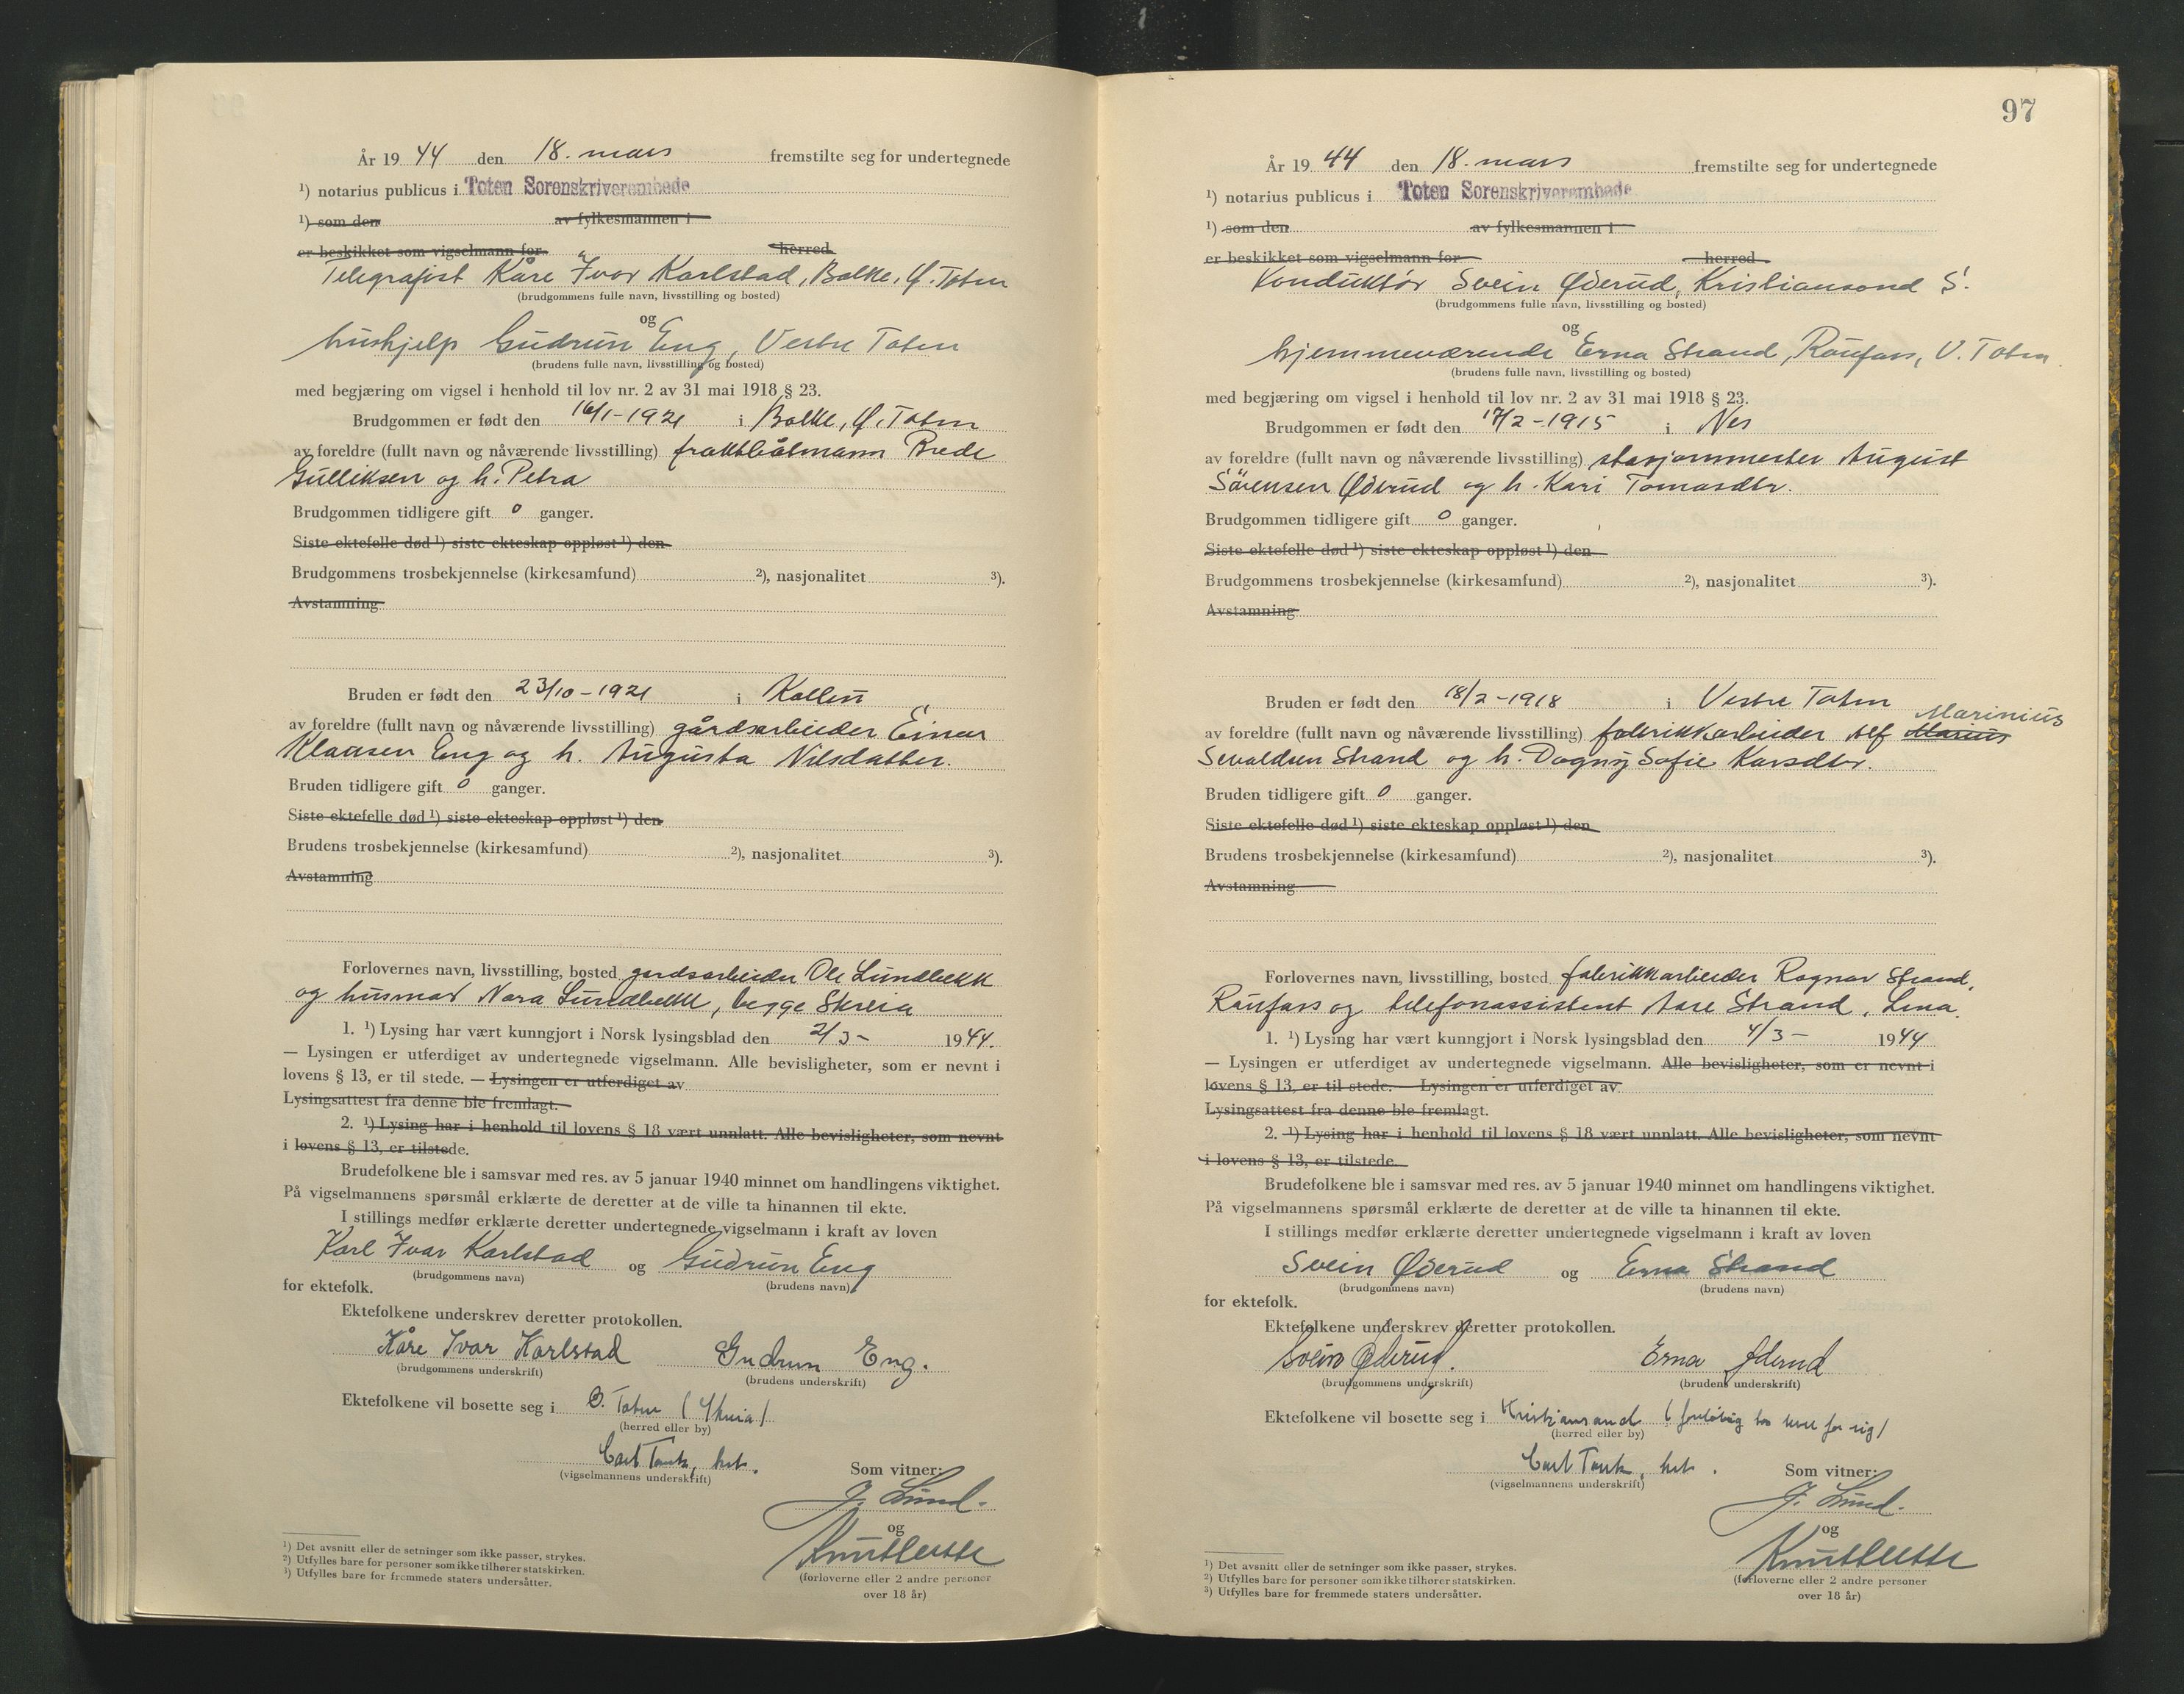 År 1944 den 18. mars fremstilte seg for undertegnede
¹) notarius publicus i Toten Sorenskriverembede
¹) som den av fylkesmannen i
er beskikket som vigselmann for herred
Telegrafist Kåre Ivar Karlstad, Balke, Ø. Toten
(brudgommens fulle navn, livsstilling og bosted)
og
hushjelp Gudrun Eng, Vestre Toten
(brudens fulle navn, livsstilling og bosted)
med begjæring om vigsel i henhold til lov nr. 2 av 31 mai 1918 § 23.
Brudgommen er født den 16/1-1921 i Balke, Ø. Toten
av foreldre (fullt navn og nåværende livsstilling) fraktbåtmann Brede
Gulliksen og h. Petra
Brudgommen tidligere gift 0 ganger.
Siste ektefelle død ¹) siste ekteskap oppløst ¹) den
Brudgommens trosbekjennelse (kirkesamfund) ²), nasjonalitet ³).
Avstamning
Bruden er født den 23/10-1921 i Kolbu
av foreldre (fullt navn og nåværende livsstilling) gårdsarbeider Einar
Klausen Eng og h. Augusta Nilsdatter.
Bruden tidligere gift 0 ganger.
Siste ektefelle død ¹) siste ekteskap oppløst ¹) den
Brudens trosbekjennelse (kirkesamfund) ²), nasjonalitet ³).
Avstamning
Forlovernes navn, livsstilling, bosted gardsarbeider Ole Lundbekk
og husmor Nora Lundbekk, begge Skreia
1. ¹) Lysing har vært kunngjort i Norsk lysingsblad den 2/3- 1944.
— Lysingen er utferdiget av undertegnede vigselmann. Alle bevisligheter, som er nevnt i
lovens § 13, er til stede. — Lysingen er utferdiget av
Lysingsattest fra denne ble fremlagt.
2. ¹) Lysing har i henhold til lovens § 18 vært unnlatt. Alle bevisligheter, som nevnt
i lovens § 13, er tilstede.
Brudefolkene ble i samsvar med res. av 5 januar 1940 minnet om handlingens viktighet.
På vigselmannens spørsmål erklærte de deretter at de ville ta hinannen til ekte.
I stillings medfør erklærte deretter undertegnede vigselmann i kraft av loven
Karl Ivar Karlstad og Gudrun Eng
(brudgommens navn) (brudens navn)
for ektefolk.
Ektefolkene underskrev deretter protokollen.
Kåre Ivar Karlstad Gudrun Eng.
(brudgommens underskrift) (brudens underskrift)
Ektefolkene vil bosette seg i Ø. Toten (Skreia)
(herred eller by)
Carl Tank, kst.
(vigselmannens underskrift)
Som vitner:
J. Lund.
og
(forloverne eller 2 andre personer
over 18 år)
¹) Det avsnitt eller de setninger som ikke passer, strykes.
²) Utfylles bare for personer som ikke tilhører statskirken.
³) Utfylles bare for fremmede staters undersåtter.
97
År 1944 den 18. mars fremstilte seg for undertegnede
¹) notarius publicus i Toten Sorenskriverembede
¹) som den av fylkesmannen i
er beskikket som vigselmann for herred
Konduktør Svein Øderud, Kristiansand S.
(brudgommens fulle navn, livsstilling og bosted)
og
hjemmeværende Erna Strand, Raufoss, V. Toten
(brudens fulle navn, livsstilling og bosted)
med begjæring om vigsel i henhold til lov nr. 2 av 31 mai 1918 § 23.
Brudgommen er født den 17/2-1915 i Nes
av foreldre (fullt navn og nåværende livsstilling) stasjonsmester August
Sørensen Øderud og h. Kari Tomasdtr.
Brudgommen tidligere gift 0 ganger.
Siste ektefelle død ¹) siste ekteskap oppløst ¹) den
Brudgommens trosbekjennelse (kirkesamfund) ²), nasjonalitet ³).
Avstamning
Bruden er født den 18/2-1918 i Vestre Toten
Marinius
av foreldre (fullt navn og nåværende livsstilling) fabrikkarbeider Alf Marius
Sevaldsen Strand og h. Dagny Sofie Larsdtr.
Bruden tidligere gift 0 ganger.
Siste ektefelle død ¹) siste ekteskap oppløst ¹) den
Brudens trosbekjennelse (kirkesamfund) ²), nasjonalitet ³).
Avstamning
Forlovernes navn, livsstilling, bosted fabrikkarbeider Ragnar Strand,
Raufoss og telefonassistent Aase Strand, Lena.
1. ¹) Lysing har vært kunngjort i Norsk lysingsblad den 4/3- 1944
— Lysingen er utferdiget av undertegnede vigselmann. Alle bevisligheter, som er nevnt i
lovens § 13, er til stede. — Lysingen er utferdiget av
Lysingsattest fra denne ble fremlagt.
2. ¹) Lysing har i henhold til lovens § 18 vært unnlatt. Alle bevisligheter, som nevnt
i lovens § 13, er tilstede.
Brudefolkene ble i samsvar med res. av 5 januar 1940 minnet om handlingens viktighet.
På vigselmannens spørsmål erklærte de deretter at de ville ta hinannen til ekte.
I stillings medfør erklærte deretter undertegnede vigselmann i kraft av loven
Svein Øderud og Erna Strand
(brudgommens navn) (brudens navn)
for ektefolk.
Ektefolkene underskrev deretter protokollen.
Svein Øderud. Erna Øderud
(brudgommens underskrift) (brudens underskrift)
Ektefolkene vil bosette seg i Kristiansand (foreløbig bo hver for sig)
(herred eller by)
Carl Tank, kst.
(vigselmannens underskrift)
Som vitner:
J. Lund.
og
(forloverne eller 2 andre personer
over 18 år)
¹) Det avsnitt eller de setninger som ikke passer, strykes.
²) Utfylles bare for personer som ikke tilhører statskirken.
³) Utfylles bare for fremmede staters undersåtter.